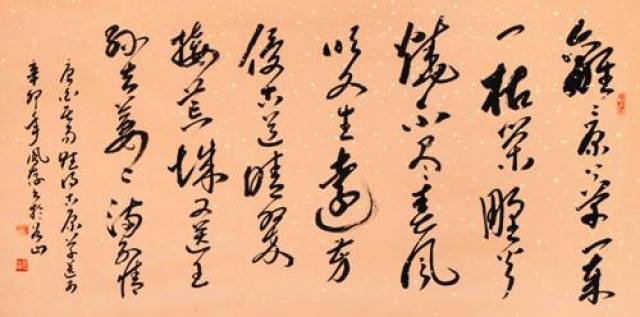 離離原上草一歲
一枯榮野火
燒不盡春風
吹又生遠芳
侵古道晴翠
接荒城又送王
孫去萋萋滿別情
唐白居易賦得古原草送別
辛卯年風書於山